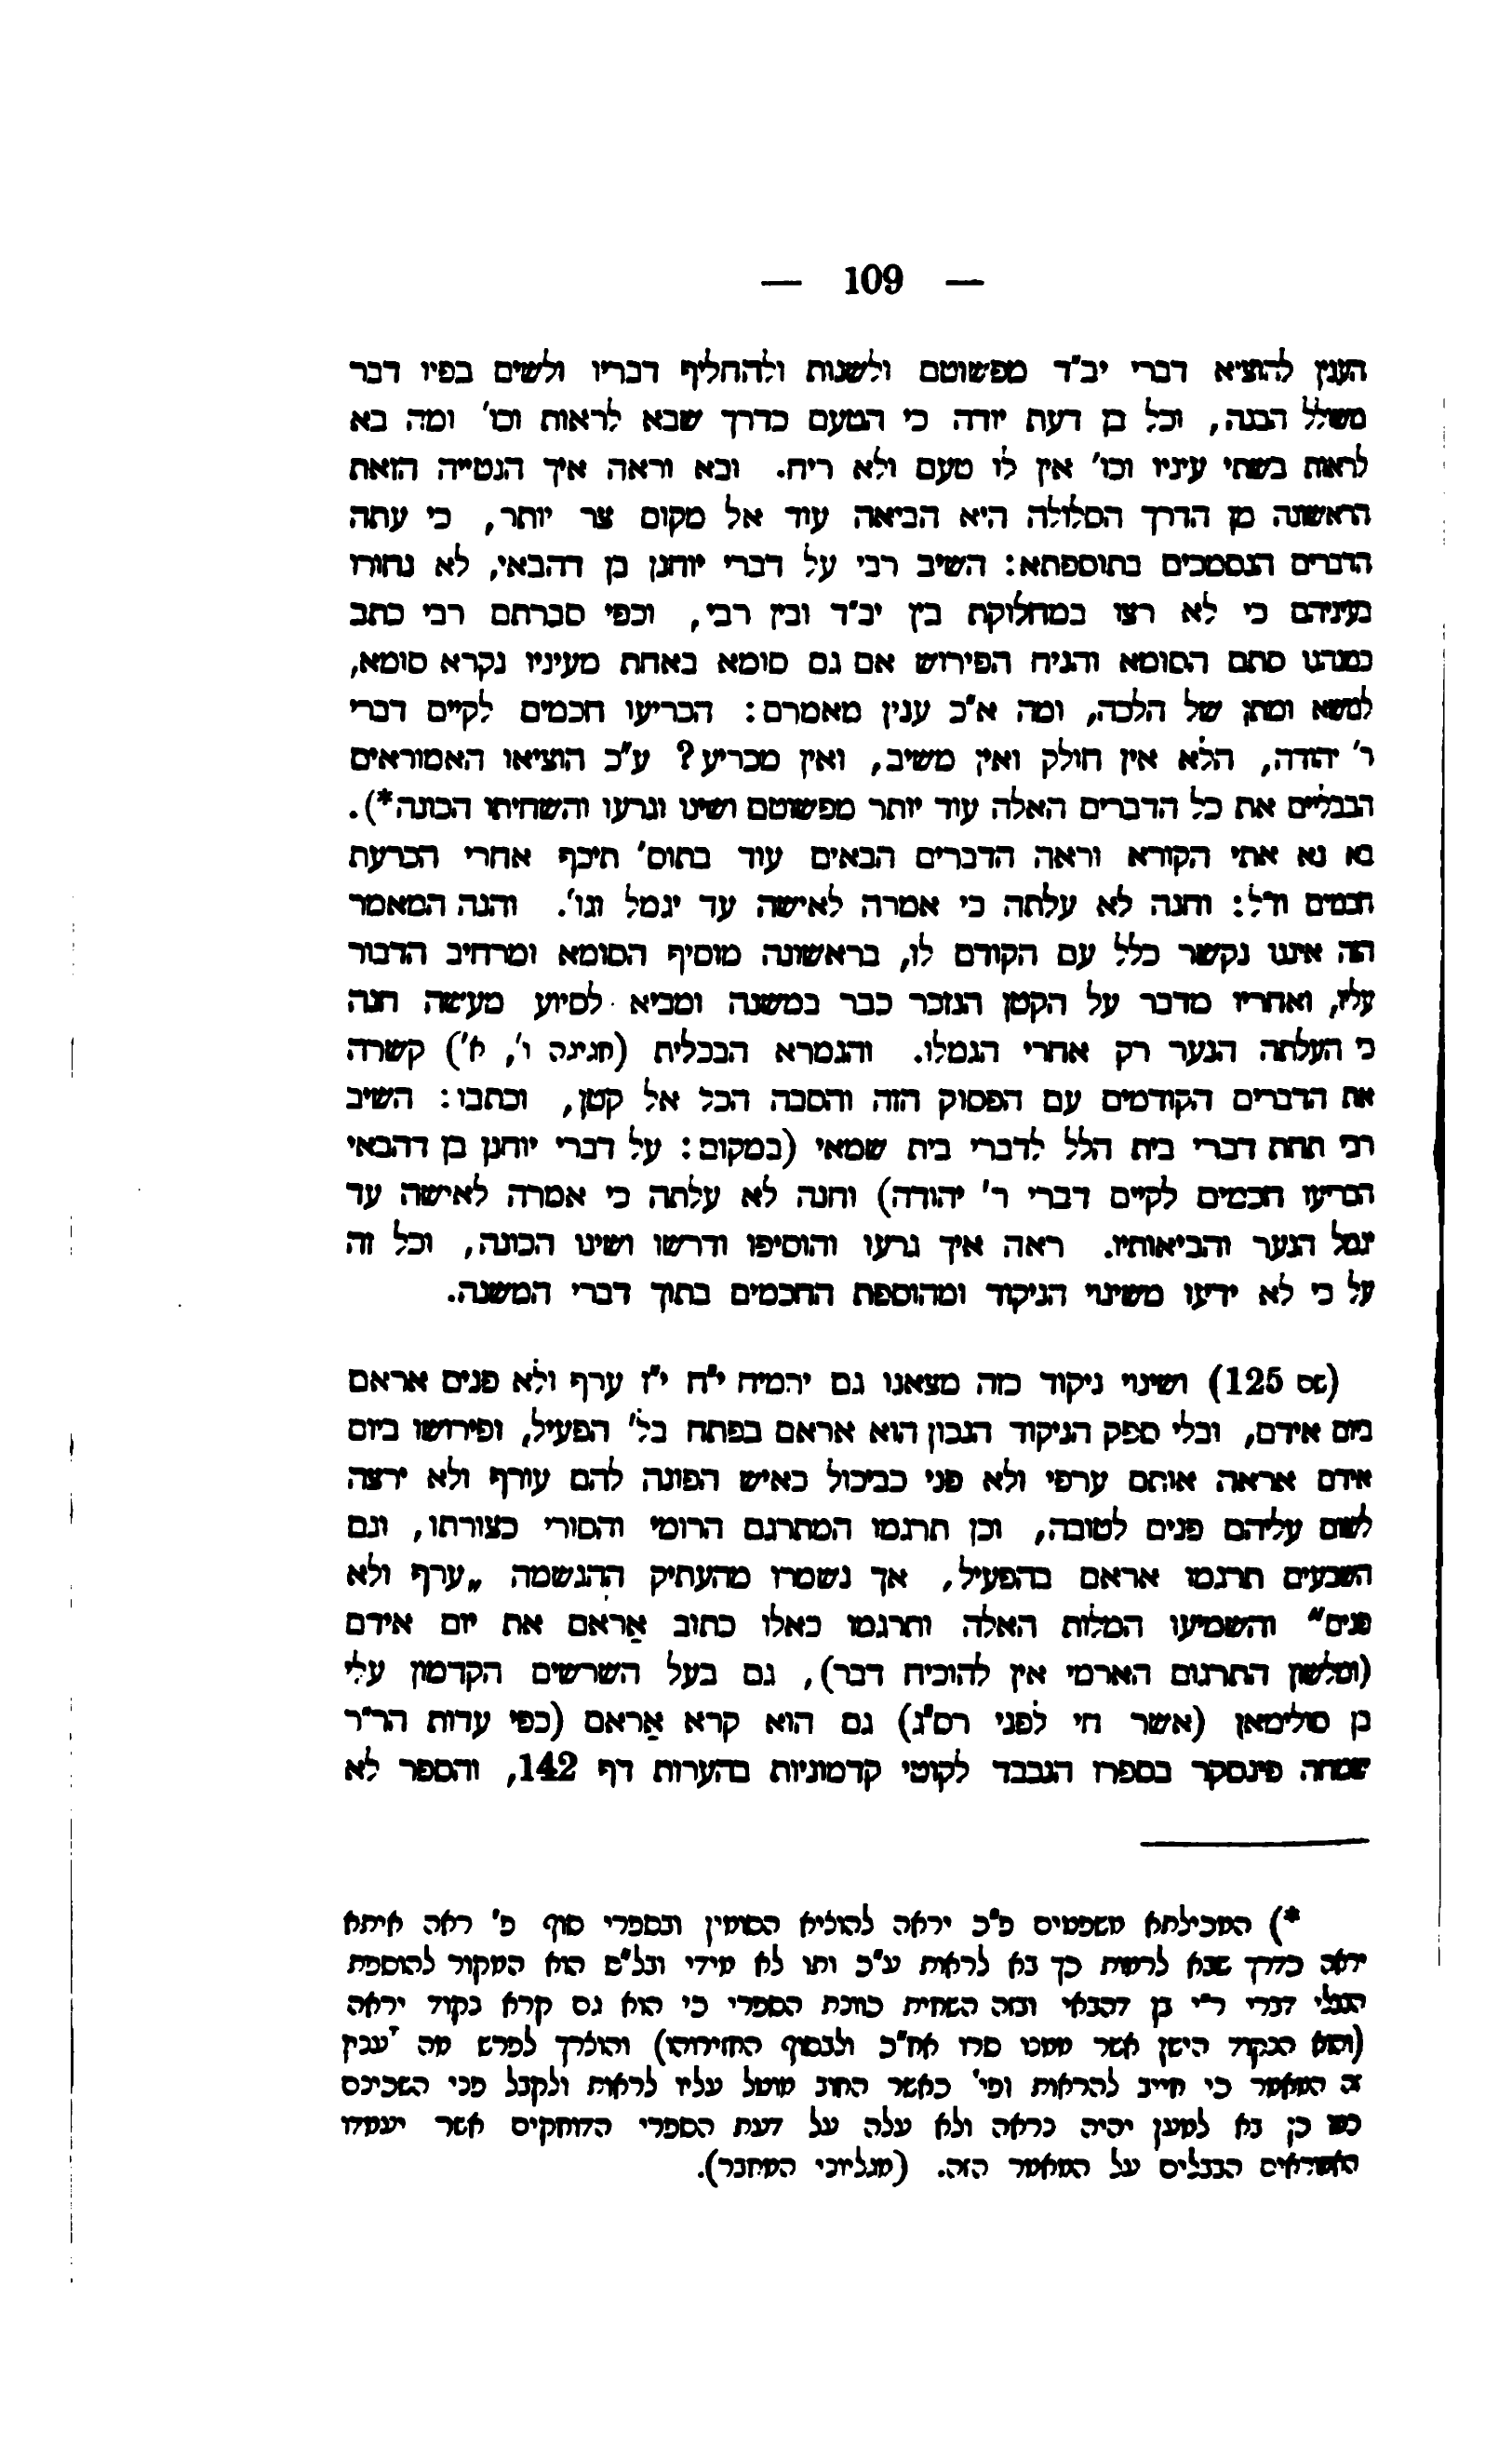 — 109 —
הענין להוציא דברי יב"ד מפשוטם ולשנות ולהחליף דבריו ולשים בפיו דבר
משולל הבנה, וכל בן דעת יודה כי הטעם כדרך שבא לראות וכו' ומה בא
לראות בשתי עיניו וכו' אין לו טעם ולא ריח. ובא וראה איך הנטייה הזאת
הראשונה מן הדרך הסלולה היא הביאה עוד אל מקום צר יותר, כי עתה
הדברים הנסמכים בתוספתא: השיב רבי על דברי יוחנן בן דהבאי, לא נהורו
בעיניהם כי לא רצו במחלוקת בין יב"ד ובין רבי, וכפי סברתם רבי כתב
כמנהגו סתם הסומא והניח הפירוש אם גם סומא באחת מעיניו נקרא סומא,
למשא ומתן של הלכה, ומה א"כ ענין מאמרם: הכריעו חכמים לקיים דברי
ר' יהודה, הלא אין חולק ואין משיב, ואין מכריע? ע"כ הוציאו האמוראים
הבבליים את כל הדברים האלה עוד יותר מפשוטם ושינו וגרעו והשחיתו הכונה*).
בא נא אתי הקורא וראה הדברים הבאים עוד בתוס' תיכף אחרי הכרעת
חכמים וז"ל: וחנה לא עלתה כי אמרה לאישה עד יגמל וגו'. והנה המאמר
הזה איננו נקשר כלל עם הקודם לו, בראשונה מוסיף הסומא ומרחיב הדבור
עליו, ואחריו מדבר על הקטן הנזכר כבר במשנה ומביא לסיוע מעשה חנה
כי העלתה הנער רק אחרי הגמלו. והגמרא הבבלית (חגיגה ו', א') קשרה
את הדברים הקודמים עם הפסוק הזה והסבה הכל אל קטן, וכתבו: השיב
רבי תחת דברי בית הלל לדברי בית שמאי (במקום: על דברי יוחנן בן דהבאי
הכריעו חכמים לקיים דברי ר' יהודה) וחנה לא עלתה כי אמרה לאישה עד
יגמל הנער והביאותיו. ראה איך גרעו והוסיפו ודרשו ושינו הכונה, וכל זה
על כי לא ידעו משינוי הניקוד ומהוספת החכמים בתוך דברי המשנה.
(125 ושינוי ניקוד כזה מצאנו גם ירמיה י"ח י"ז ערף ולא פנים אראם
ביום אידם, ובלי ספק הניקוד הנכון הוא אראם בפתח בל' הפעיל, ופירושו ביום
אידם אראה אותם ערפי ולא פני כביכול כאיש הפונה להם עורף ולא ירצה
לשום עליהם פנים לטובה, וכן תרגמו המתרגם הרומי והסורי כצורתו, וגם
השבעים תרגמו אראם בהפעיל, אך נשמרו מהעתיק ההגשמה „ערף ולא
פנים" והשמיעו המלות האלה ותרגמו כאלו כתוב אַראם את יום אידם
(ומלשון התרגום הארמי אין להוכיח דבר), גם בעל השרשים הקדמון עלי
בן סולימאן (אשר חי לפני רס"ג) גם הוא קרא אַראם (כפי עדות הר"ר
שמחה פינסקר בספרו הנכבד לקוטי קדמוניות בהערות דף 142, והספר לא
*) המכילתא משפטים פ"כ יראה להוציא הסומין ובספרי סוף פ' ראה איתא
יראה כדרך שבא לראות כך בא לראות ע"כ ותו לא מידי ונל"ס הוא המקור להוספת
הבבלי דברי ר"י בן דהבאי ובזה השחית כוונת הספרי כי הוא גם קרא בקוד יראה
(והוא הנקוד הישן אשר ממנו סרו אח"כ ולבסוף החזירוהו) והוצרך לפרש מה ענין
זה המאמר כי חייב להראות ופי' כאשר החוב מוטל עליו לראות ולקבל פני השכינה
כמו כן בא למען יהיה נראה ולא עלה על דעת הספרי הדוחקים אשר יעמדו
האמוראים הבבלים על המאמר הזה. (מגליוני המחבר).